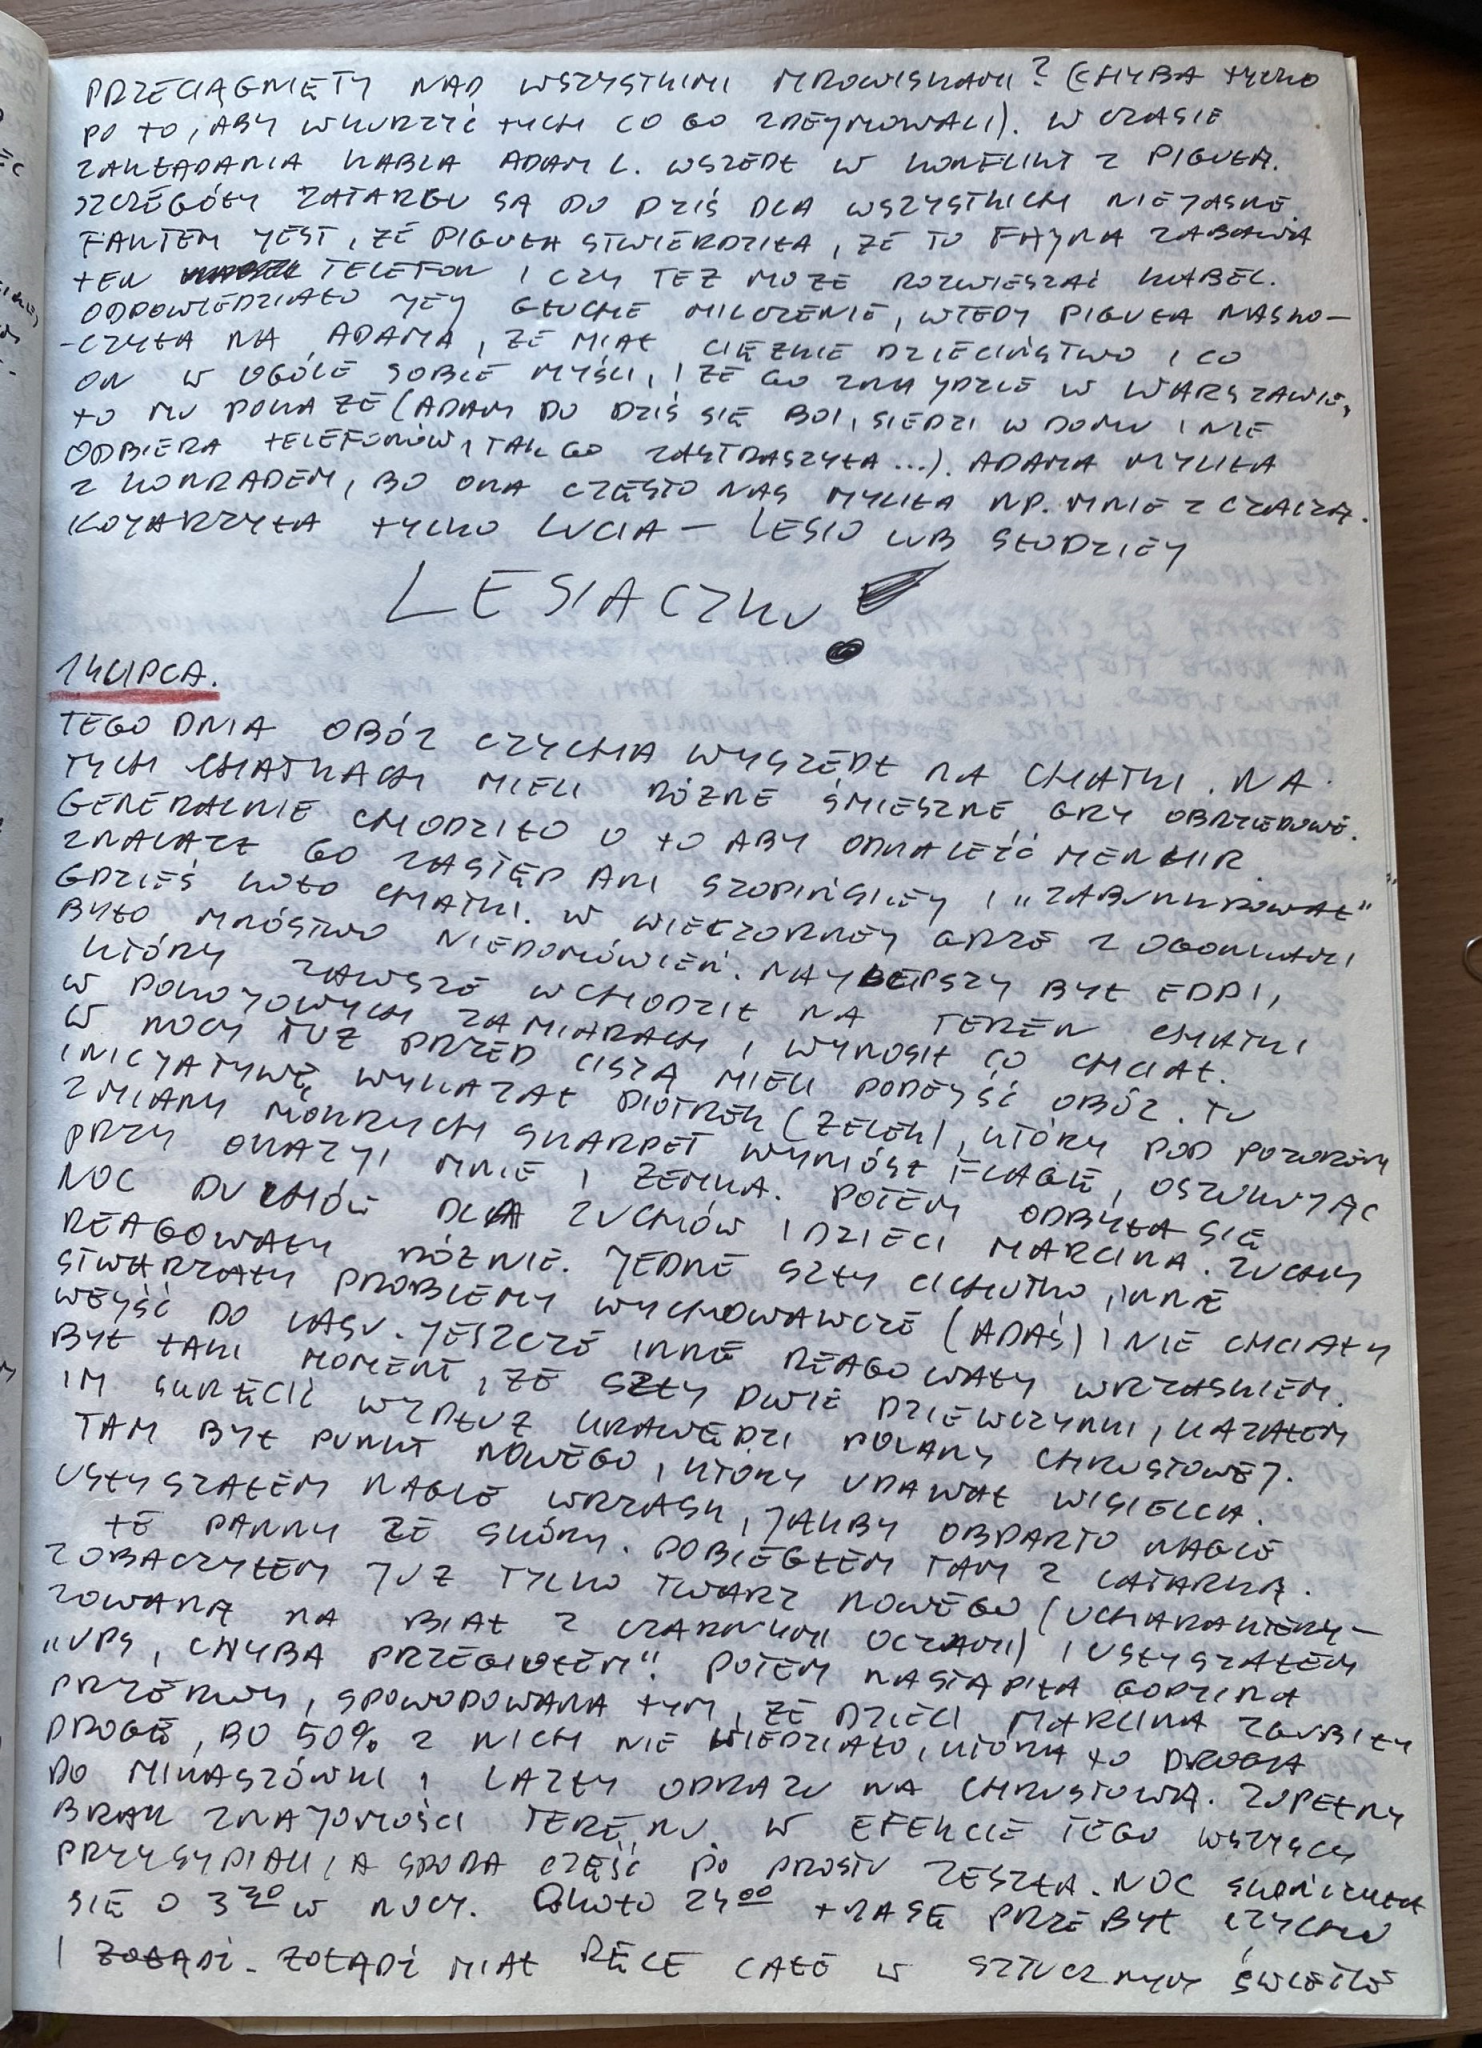 PRZECIĄGNIĘTY NAD WSZYSTKIMI MROWISKAMI? (CHYBA TYLKO
PO TO, ABY WKURZYĆ TYCH CO GO ZDEJMOWALI). W CZASIE
ZAKŁADANIA KABLA ADAM L. WSZEDŁ W KONFLIKT Z PIGUŁĄ.
SZCZEGÓŁY ZATARGU SĄ DO DZIŚ DLA WSZYSTKICH NIEJASNE.
FAKTEM JEST, ŻE PIGUŁA STWIERDZIŁA, ŻE TO FAJNA ZABAWA
TEN TELEFON I CZY TEŻ MOŻE ROZWIESZAĆ KABEL.
ODPOWIEDZIAŁO JEJ GŁUCHE MILCZENIE, WTEDY PIGUŁA NASKO-
-CZYŁA NA ADAMA, ŻE MIAŁ CIĘŻKIE DZIECIŃSTWO I CO
ON W OGÓLE SOBIE MYŚLI, I ŻE GO ZNAJDZIE W WARSZAWIE,
TO MU POKAŻE (ADAM DO DZIŚ SIĘ BOI, SIEDZI W DOMU I NIE
ODBIERA TELEFONÓW, TAK GO ZASTRASZYŁA...). ADAMA MYLIŁA
Z KONRADEM, BO ONA CZĘSTO NAS MYLIŁA NP. MNIE Z CZACZĄ.
KOJARZYŁA TYLKO LUCJA – LESIO LUB SŁODZIEJ
LESIACZKU!
14 LIPCA.
TEGO DNIA OBÓZ CZYCHA WYSZEDŁ NA CHATKI. NA
TYCH CHATKACH MIELI RÓŻNE ŚMIESZNE GRY OBRZĘDOWE.
GENERALNIE CHODZIŁO O TO ABY ODNALEŹĆ MENHIR.
ZNALAZŁ GO ZASTĘP ANI SZOPIŃSKIEJ I „ZABUNKROWAŁ"
GDZIEŚ KOŁO CHATKI. W WIECZORNEJ GRZE Z OGONKAMI
BYŁO MNÓSTWO NIEDOMÓWIEŃ. NAJLEPSZY BYŁ EDDI,
KTÓRY ZAWSZE WCHODZIŁ NA TEREN CHATKI
W POKOJOWYCH ZAMIARACH I WYNOSIŁ CO CHCIAŁ.
W NOCY TUŻ PRZED CISZĄ MIELI PODEJŚĆ OBÓZ. TU
INICJATYWĘ WYKAZAŁ PIOTREK (ZELEK), KTÓRY POD POZOREM
ZMIANY MOKRYCH SKARPET WYNIÓSŁ FLAGĘ, OSZUKUJĄC
PRZY OKAZJI MNIE I ZEMKA. POTEM ODBYŁA SIĘ
NOC DUCHÓW DLA ZUCHÓW I DZIECI MARCINA. ZUCHY
REAGOWAŁY RÓŻNIE. JEDNE SZŁY CICHUTKO, INNE
STWARZAŁY PROBLEMY WYCHOWAWCZE (ADAŚ) I NIE CHCIAŁY
WEJŚĆ DO LASU. JESZCZE INNE REAGOWAŁY WRZASKIEM.
BYŁ TAKI MOMENT, ŻE SZŁY DWIE DZIEWCZYNKI, KAZAŁEM
IM SKRĘCIĆ WZDŁUŻ KRAWĘDZI POLANY CHRUSTOWEJ.
TAM BYŁ PUNKT NOWEGO, KTÓRY UDAWAŁ WISIELCA.
USŁYSZAŁEM NAGLE WRZASK, JAKBY OBDARTO NAGLE
TE PANNY ZE SKÓRY. POBIEGŁEM TAM Z LATARKĄ.
ZOBACZYŁEM JUŻ TYLKO TWARZ NOWEGO (UCHARAKTERY-
ZOWANĄ NA BIAŁ Z CZARNYMI OCZAMI) I USŁYSZAŁEM
„UPS, CHYBA PRZEGIOŁEM". POTEM NASTĄPIŁA GODZINA
PRZERWY, SPOWODOWANA TYM, ŻE DZIECI MARCINA ZGUBIŁY
DROGĘ, BO 50% Z NICH NIE WIEDZIAŁO, KTÓRA TO DROGA
DO MIKASZÓWKI I LAZŁY ODRAZU NA CHRUSTOWĄ. ZUPEŁNY
BRAK ZNAJOMOŚCI TERENU. W EFEKCIE TEGO WSZYSCY
PRZYSYPIALI, A SPORA CZĘŚĆ PO PROSTU ZESZŁA. NOC SKOŃCZYŁA
SIĘ O 3 30 W NOCY. OKOŁO 24 00 TRASĘ PRZEBYŁ CZYCHU
I ŻOŁĄDŹ. ŻOŁĄDŹ MIAŁ RĘCE CAŁE W SZTUCZNYM ŚWIETLE